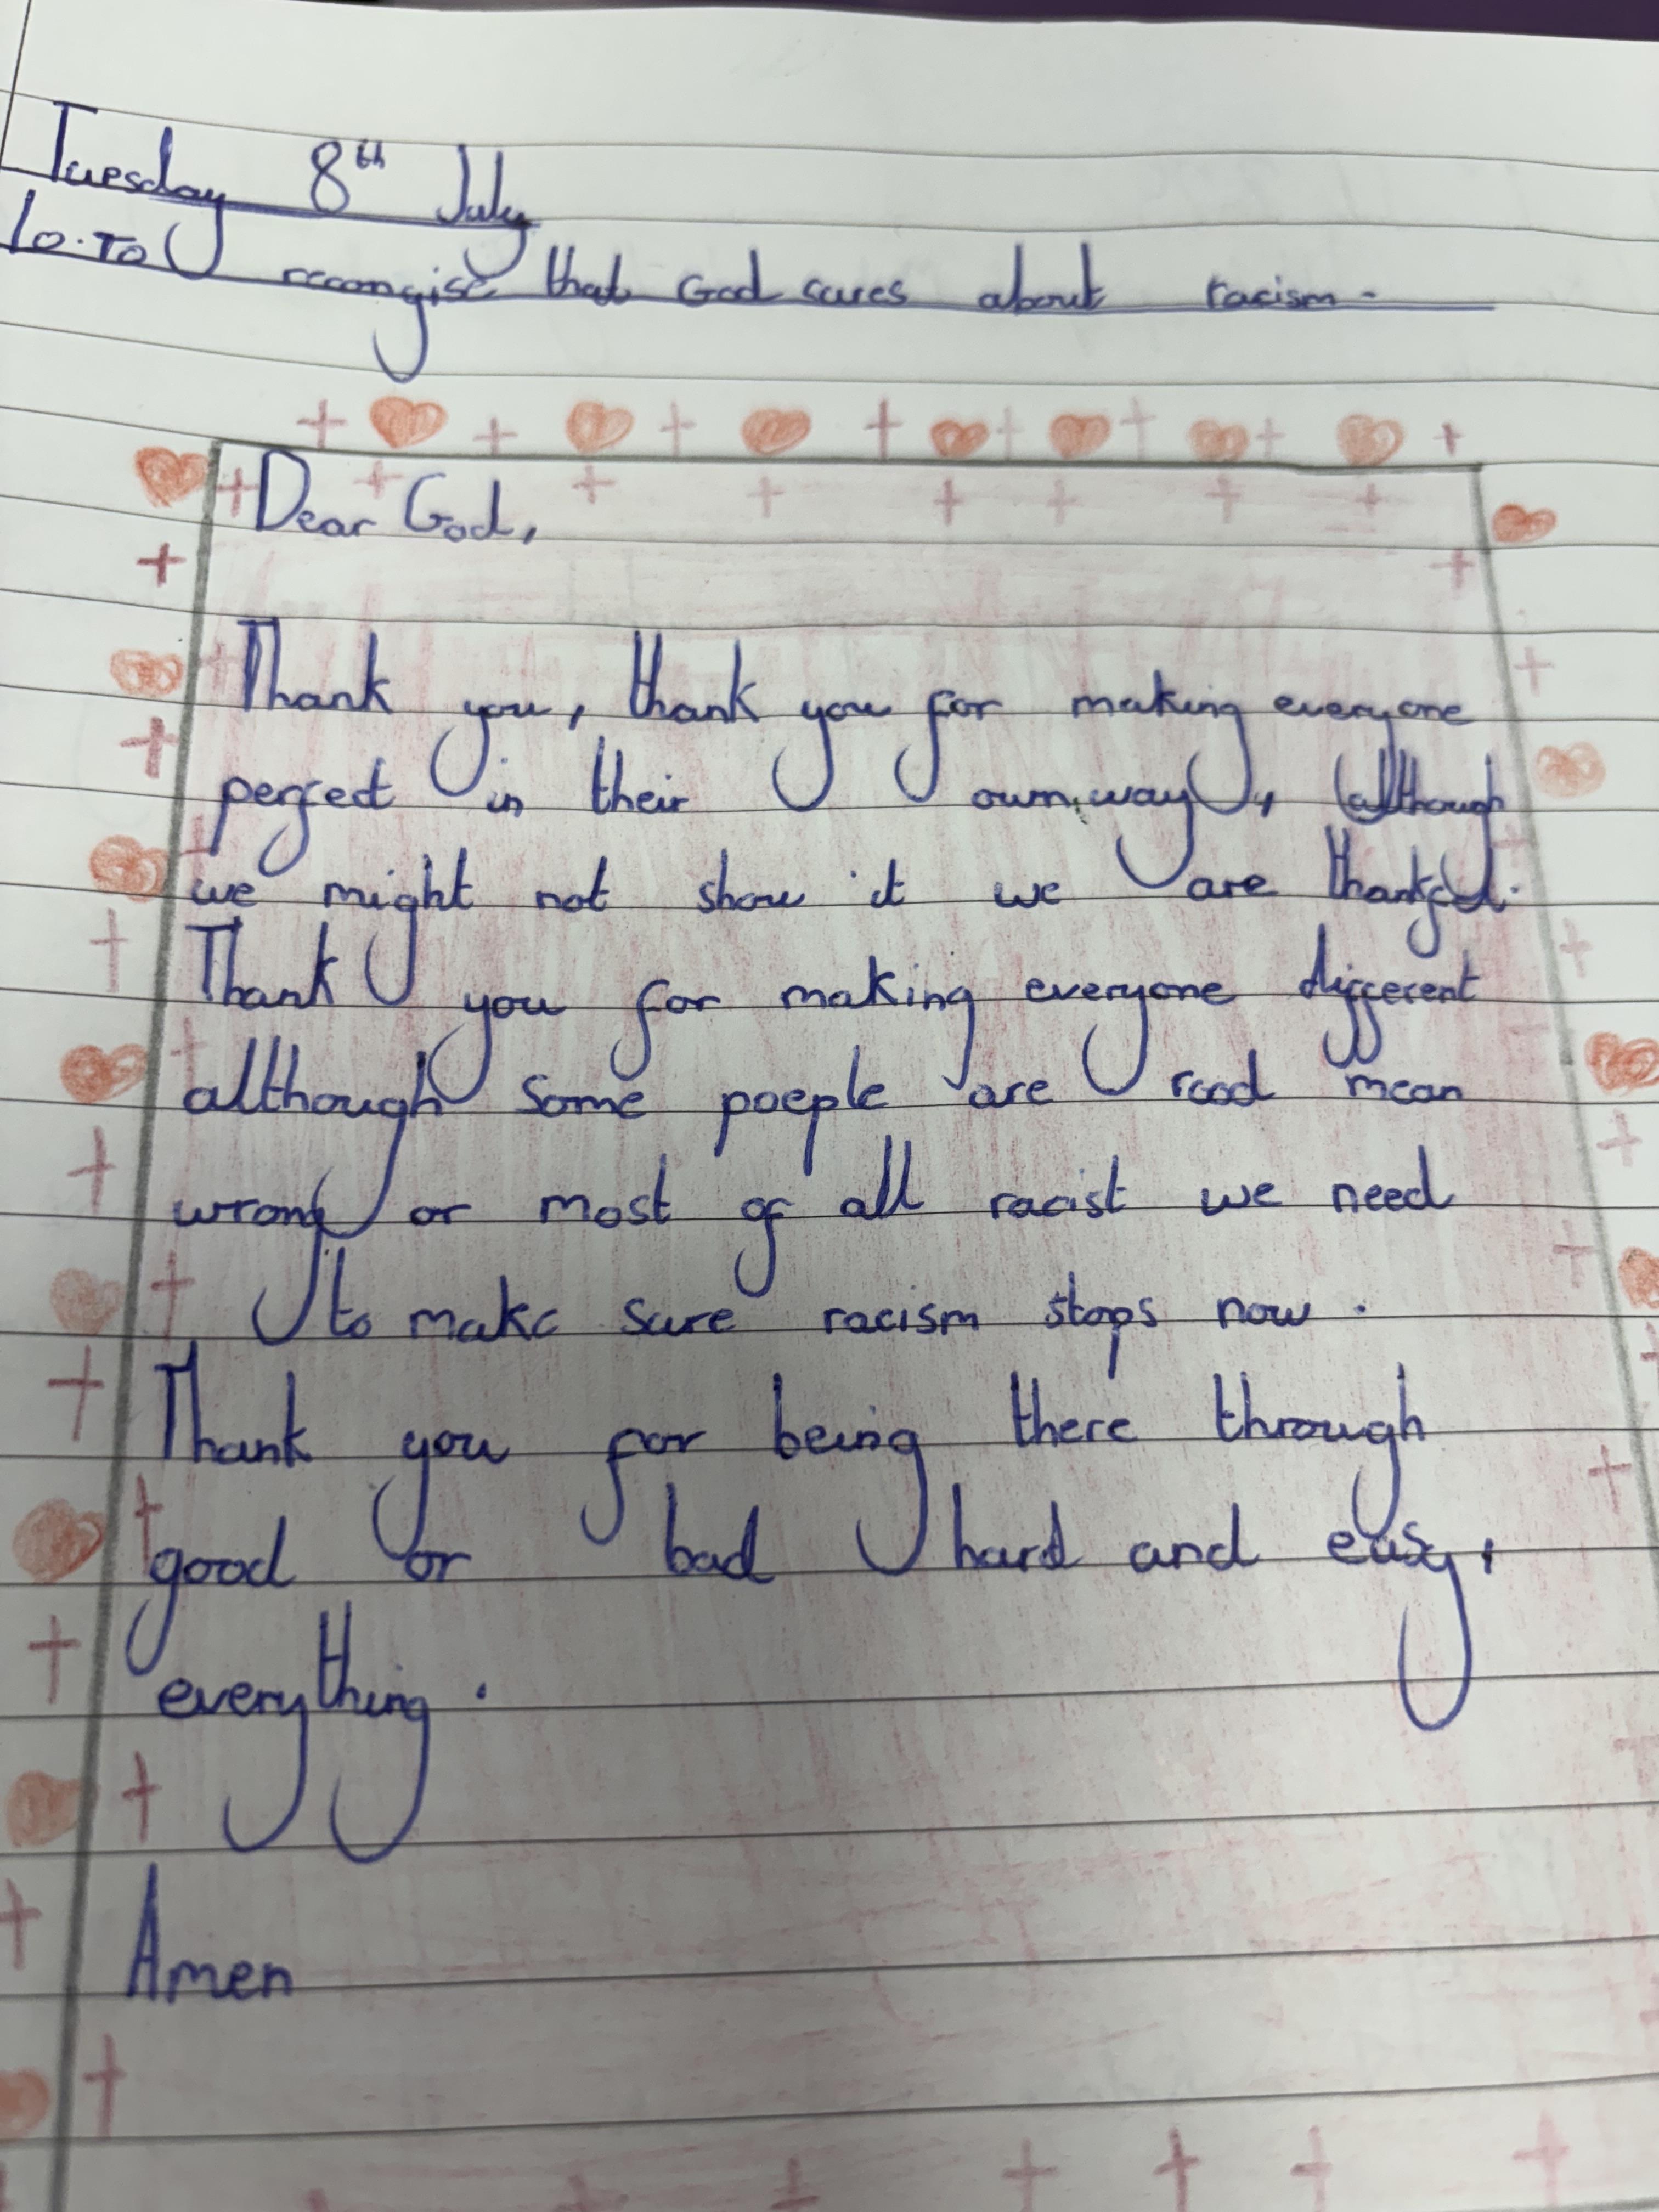 Tuesday 8th July
LO.To recongise that God cares about racism.
Dear God,
Thank you, thank you for making everyone
perfect in their own way, although
we might not show it we are thankful.
Thank you for making everyone different
although some poeple are rood mean
wrong or most of all racist we need
to make sure racism stops now.
Thank you for being there through
good or bad hard and easy,
everything.
Amen